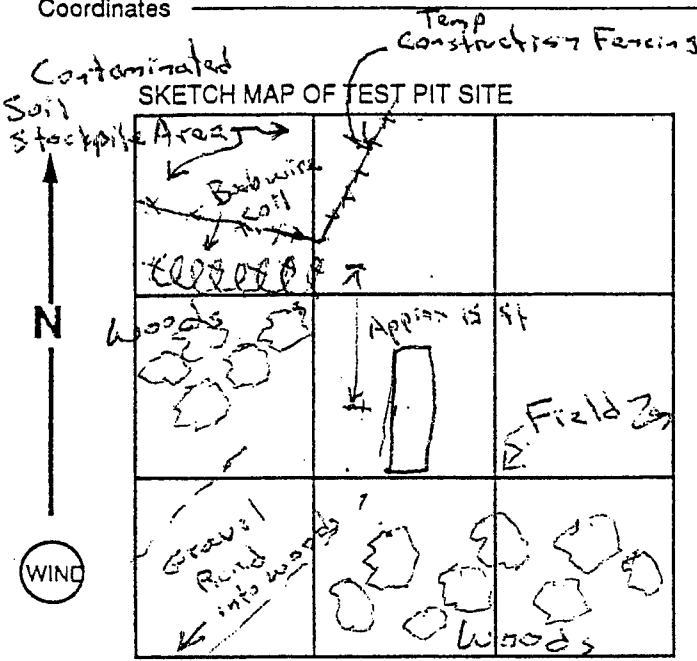 Coordinates
Temp
Construction Fencing
Contaminated
Soil
Stockpile Area
SKETCH MAP OF TEST PIT SITE
Barbwire
coil
N
Woods
Approx 15 ft
Field
WIND
Gravel
Road
into woods
Woods